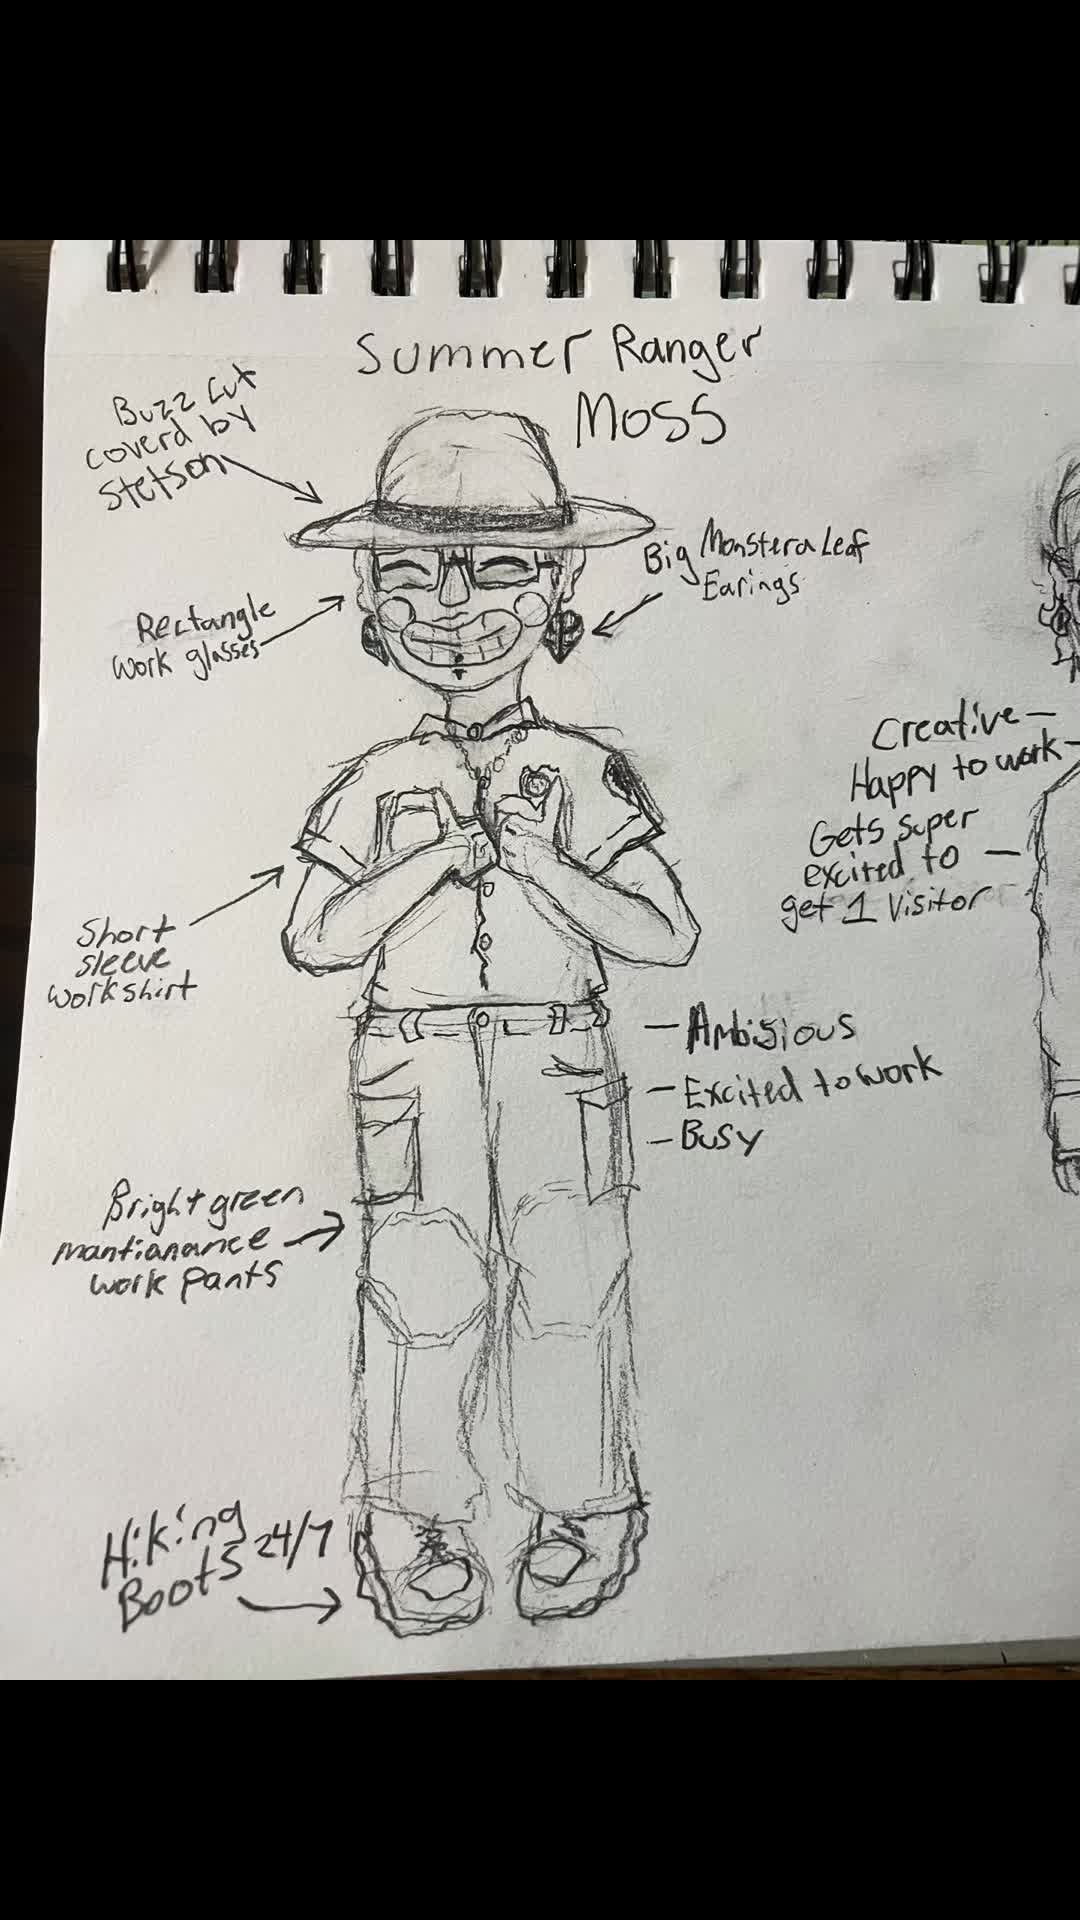 Summer Ranger
Moss
Buzz Cut
coverd by
Stetson
Big Monstera Leaf
Earings
Rectangle
work glasses
Creative –
Happy to work –
Gets super
excited to –
get 1 visitor
Short
sleeve
workshirt
– Ambisious
– Excited to work
– Busy
Bright green
mantianance
work pants
Hiking
Boots 24/7